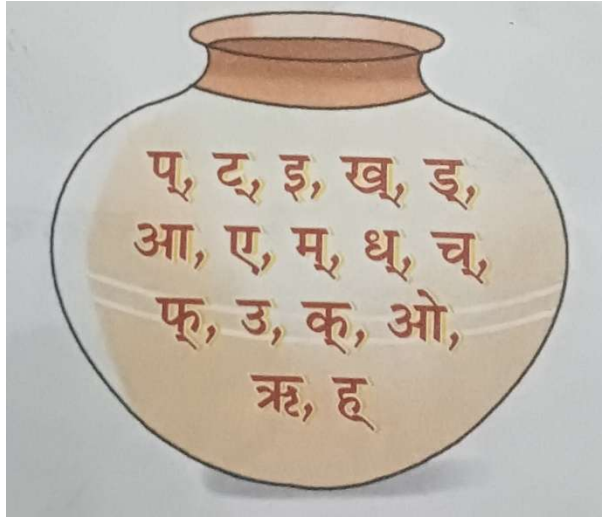 प्, ट्, इ, ख्, ड्,
आ, ए, म्, ध्, च्,
फ्, उ, क्, ओ,
ऋ, ह्